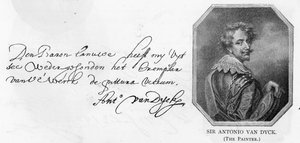 Den Baron Canuwe heeft my Vyt
See Wedergesonden het Exemplar
vande de pittura Veterum.
Ant.º van Dyck
SIR ANTONIO VAN DYCK.
(THE PAINTER.)